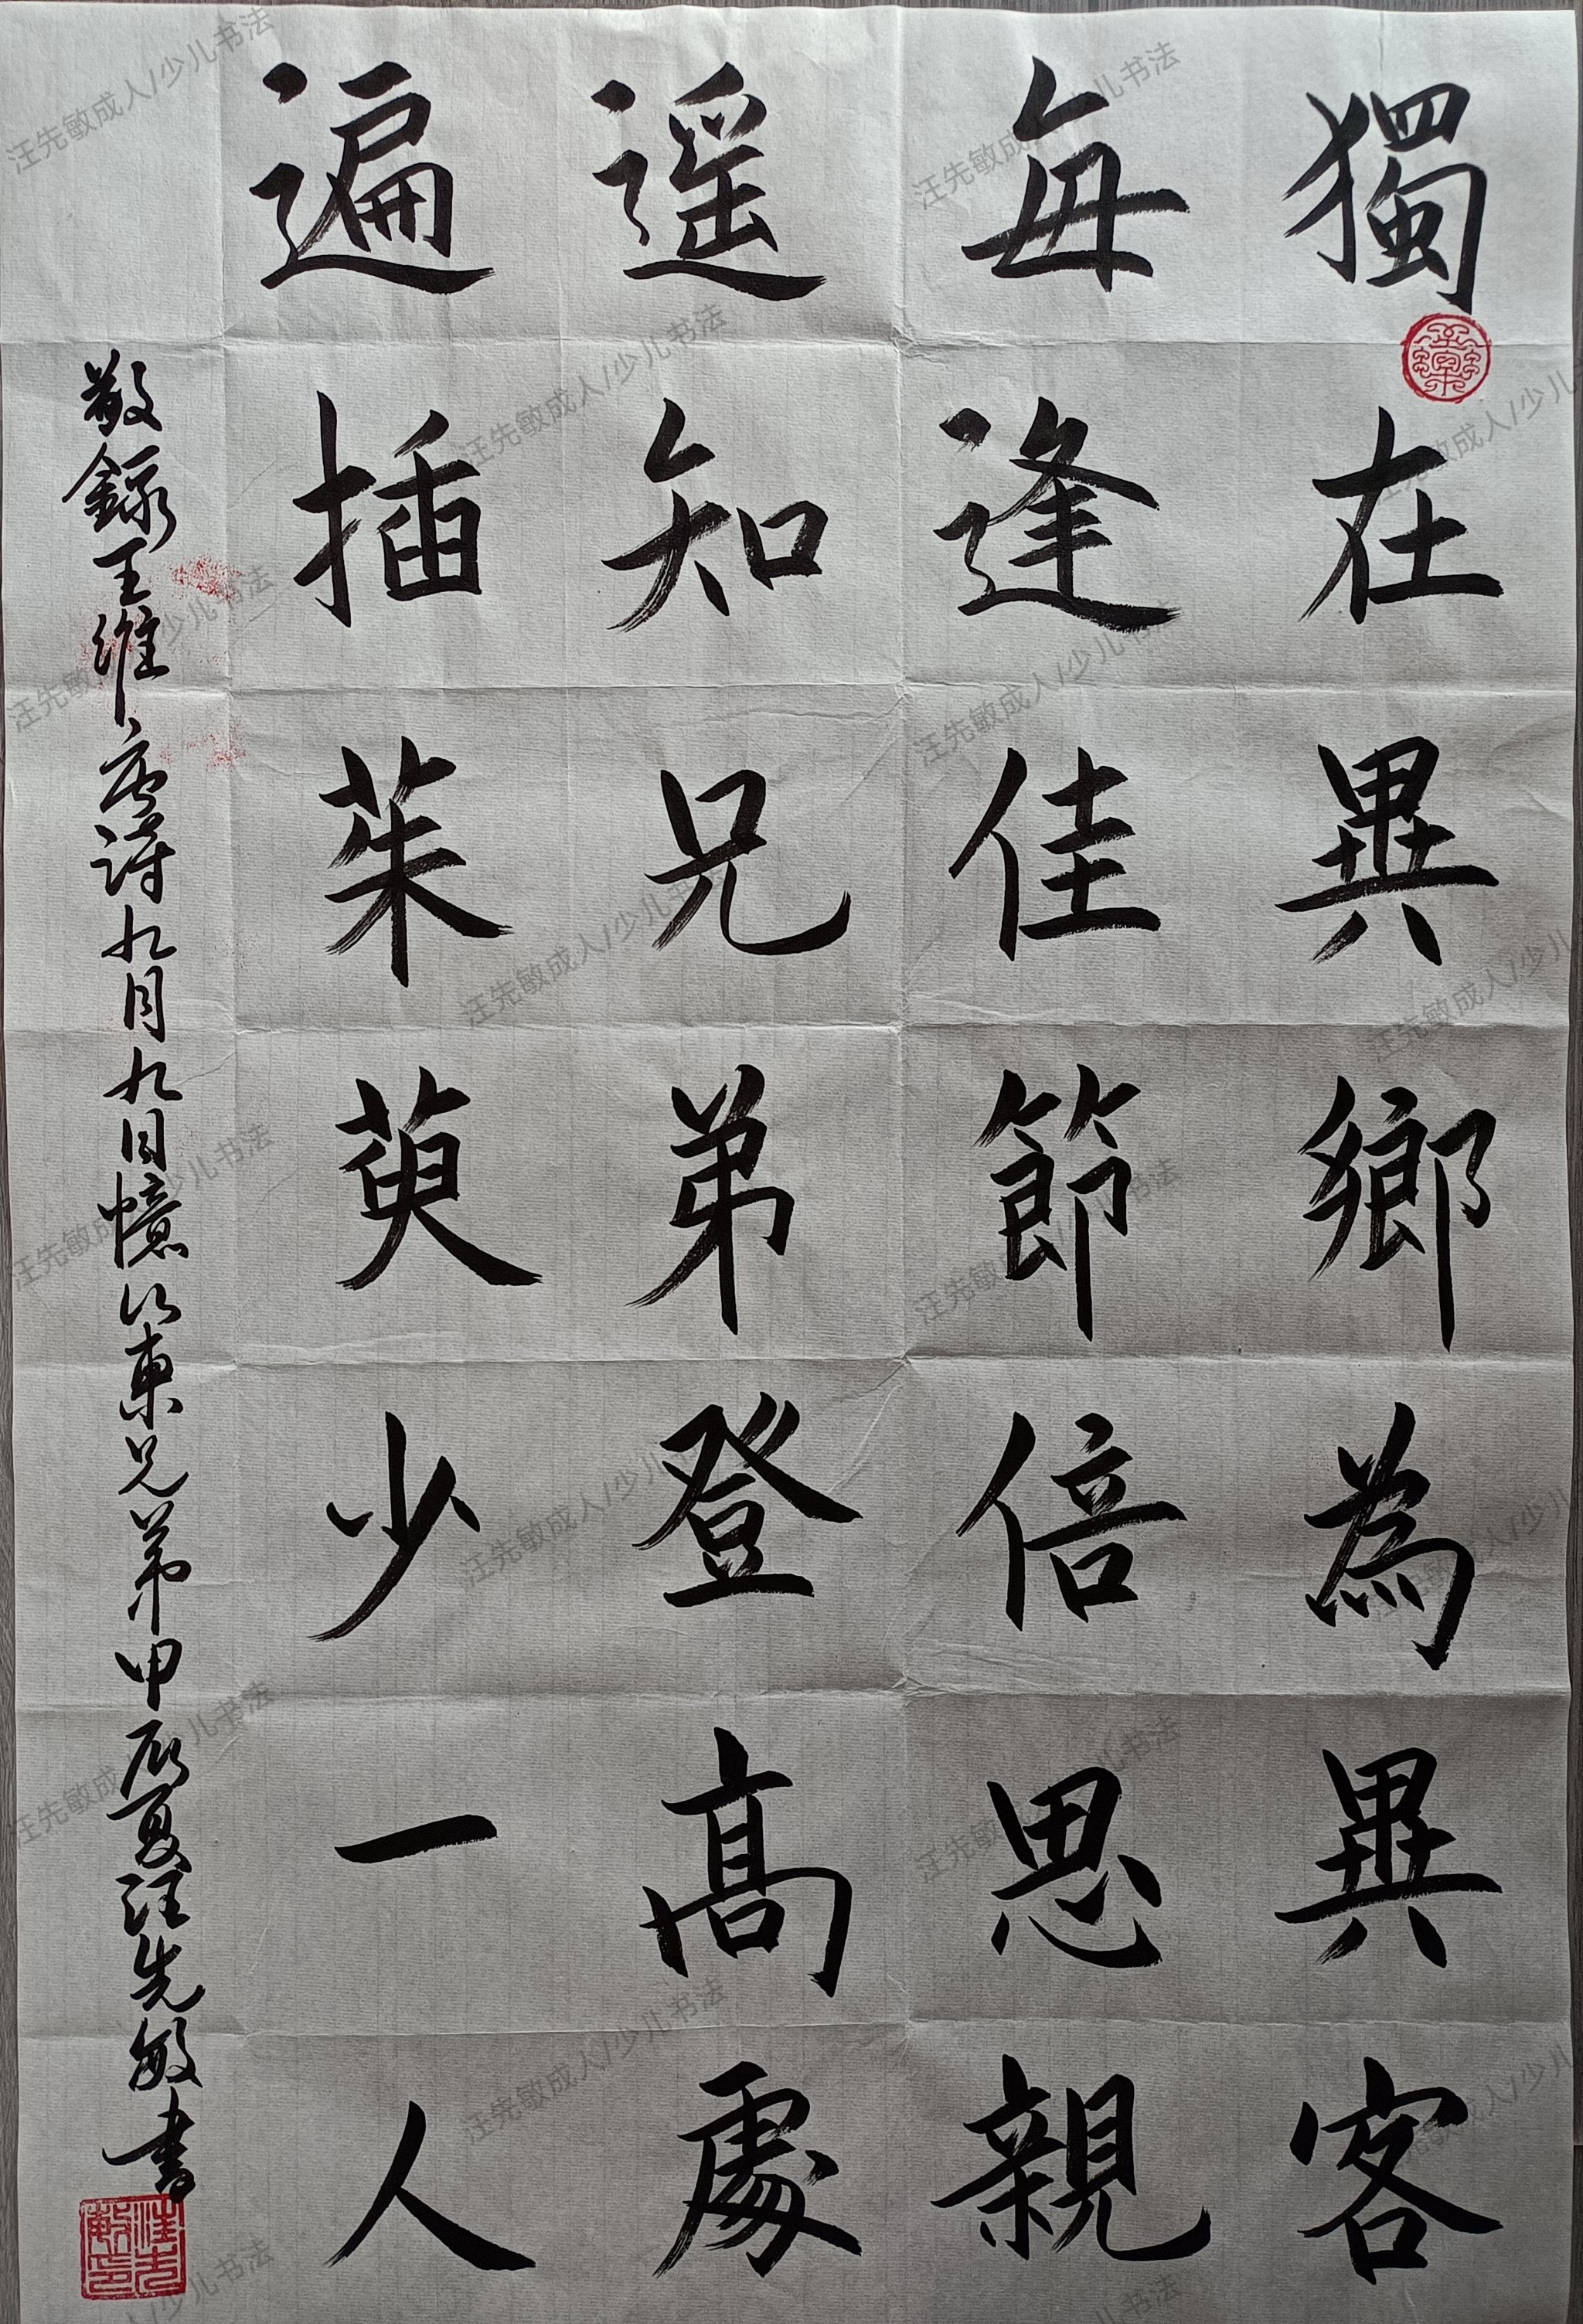 獨在異鄉為異客
每逢佳節倍思親
遥知兄弟登髙處
遍插茱萸少一人
敬錄王維唐詩九月九日憶山東兄弟甲辰夏汪先敏書
汪先敏印
汪先敏成人/少儿书法